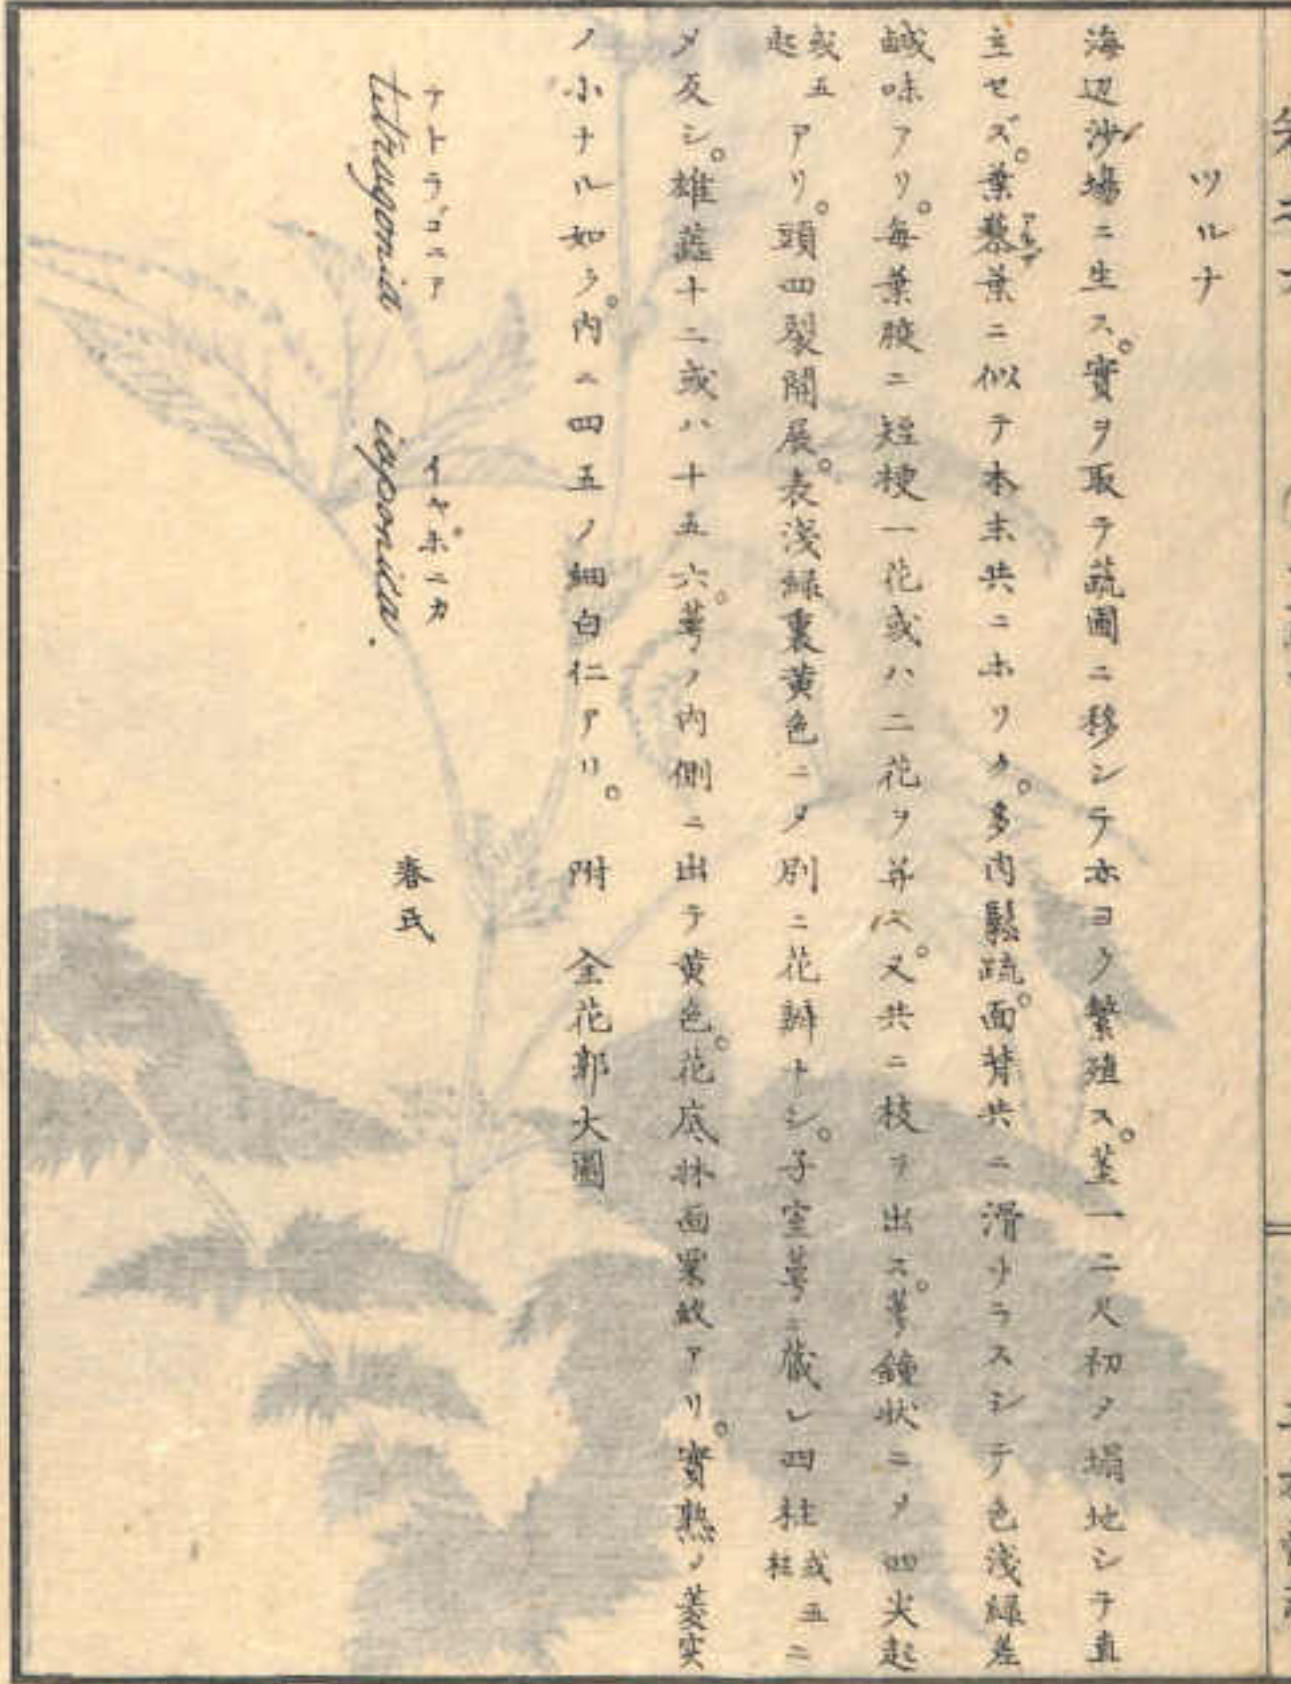 ツルナ
海辺沙場ニ生ス。實ヲ取テ蔬圃ニ移シテ亦ヨク繁殖ス。茎一二尺初メ塌地シテ直
立セズ。葉藜葉ニ似テ本末共ニホソク。多肉鬆疏。面背共ニ滑ナラスシテ色浅緑差
鹹味アリ。毎葉腋ニ短梗一花或ハ二花ヲ并ス。又共ニ枝ヲ出ス。萼鐘状ニメ四尖起
或五起アリ。頭四裂開展。表浅緑裏黄色ニメ別ニ花瓣ナシ。子室萼ニ蔵レ四柱或五柱ニ
メ反シ。雄蕊十二或ハ十五六。萼ノ内側ニ出テ黄色。花底牀面罘紋アリ。實熟ノ菱実
ノ小ナル如ク。内ニ四五ノ細白仁アリ。 附 全花郭大圖
テトラゴニア イヤポニカ
tetragonia iaponica. 春氏